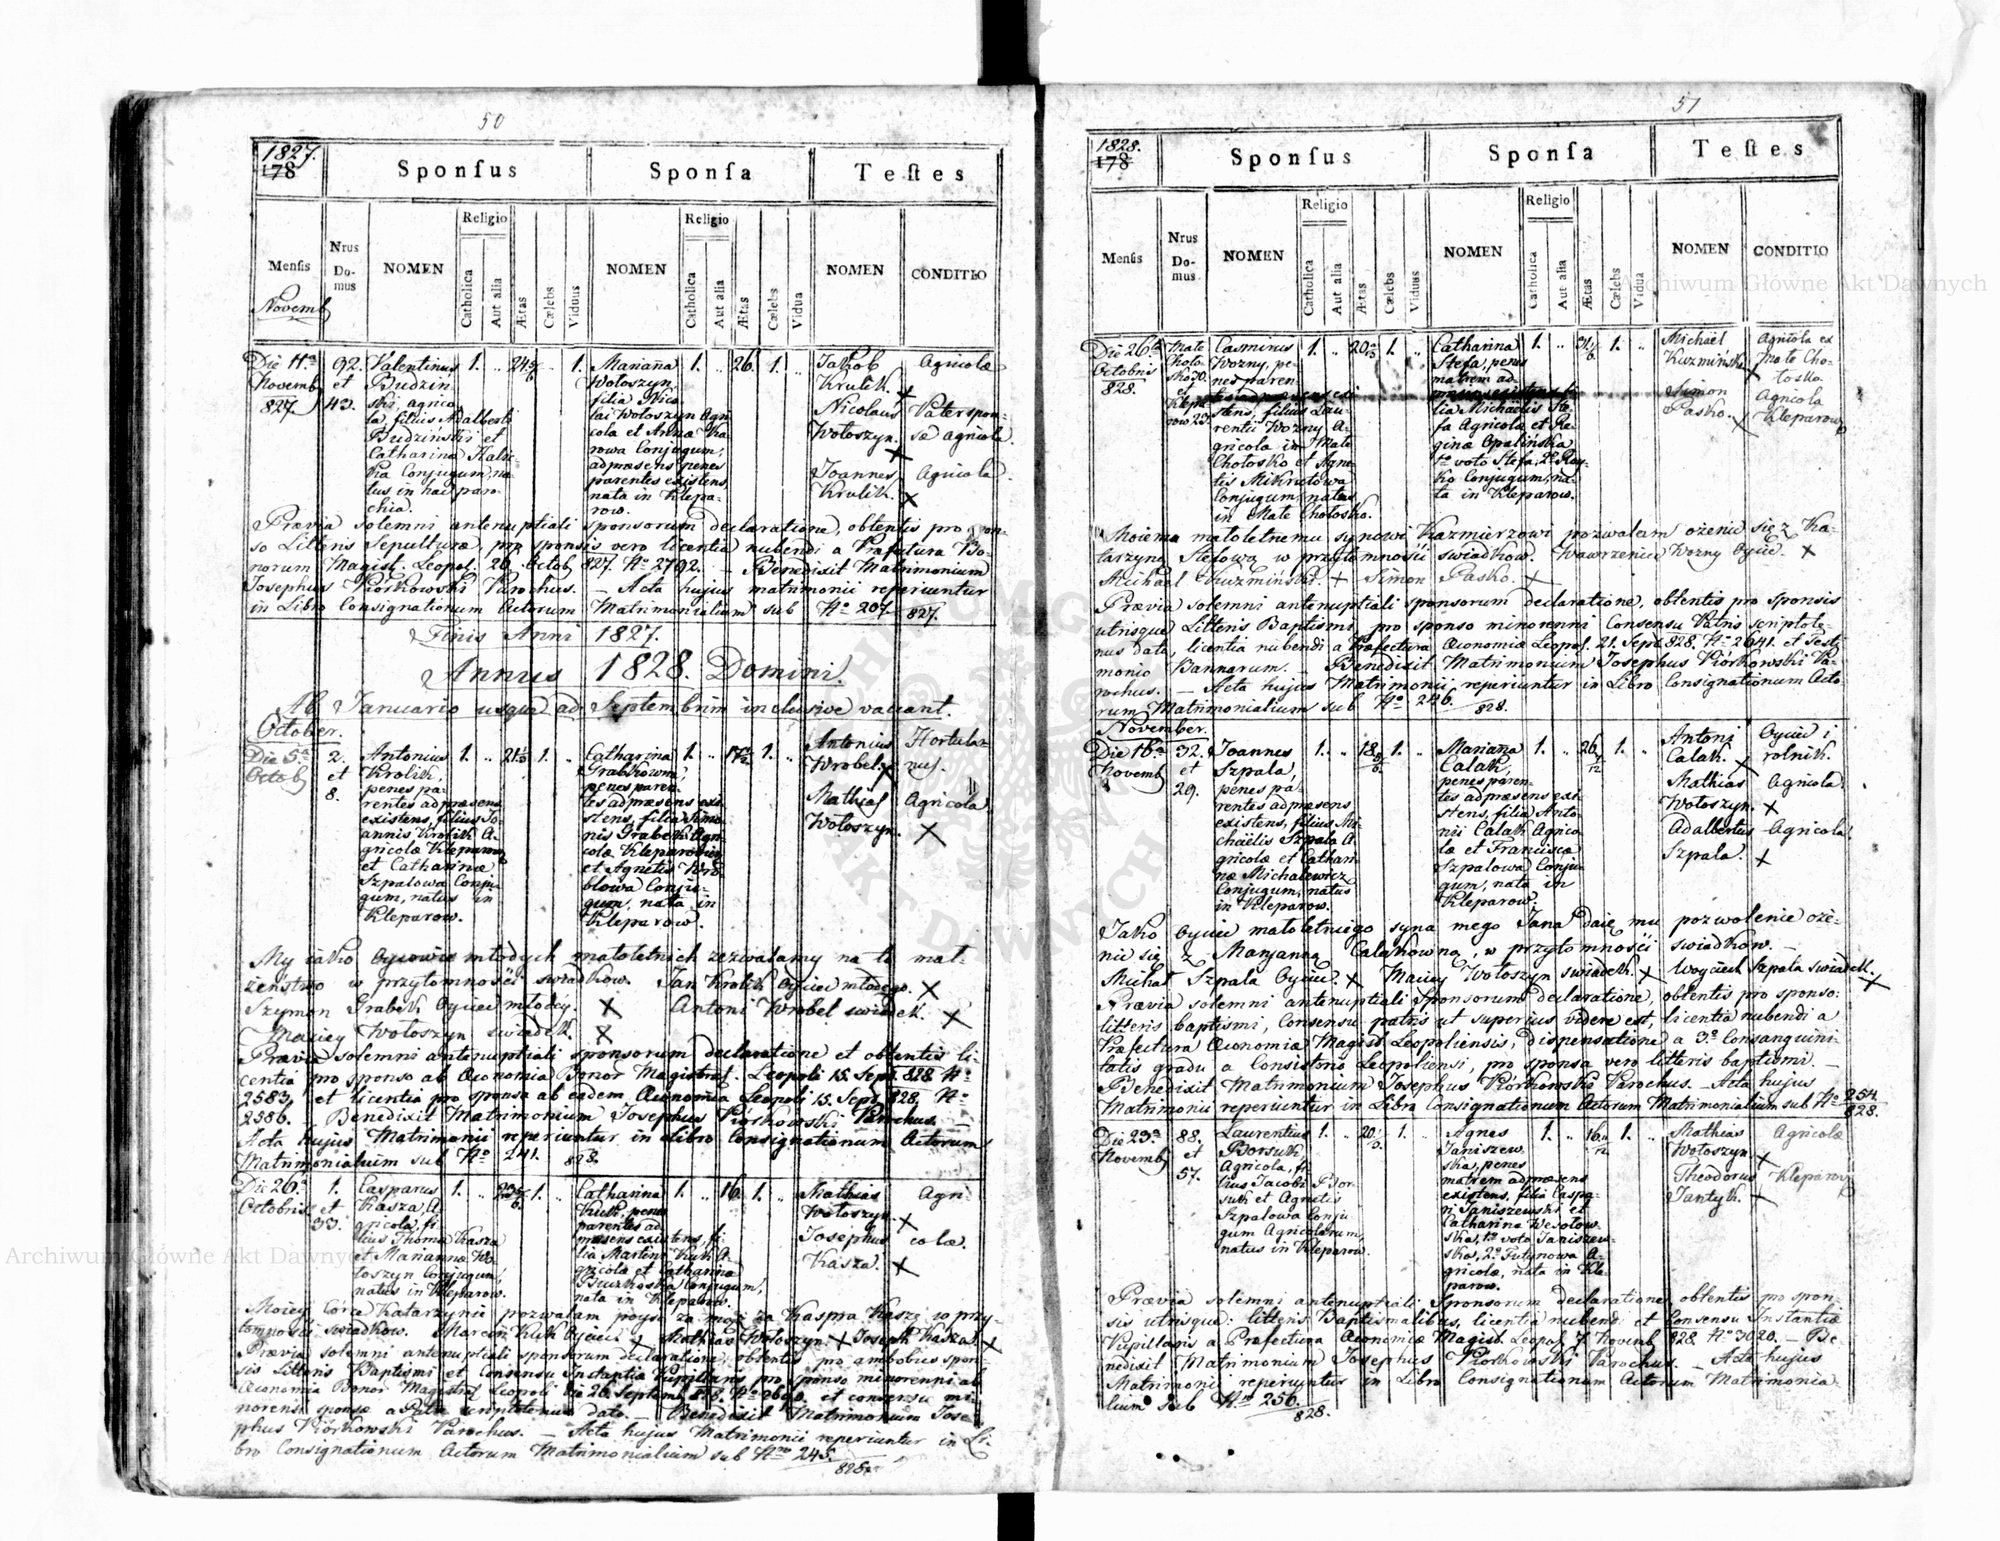 50
1827.
178
Sponſus
Sponſa
Teſtes
Menſis
Nrus Do-mus
NOMEN
Religio
Catholica
Aut alia
Ætas
Cælebs
Viduus
NOMEN
Religio
Catholica
Aut alia
Ætas
Cælebs
Vidua
NOMEN
CONDITIO
Novemb
Die 11ª
Novemb
827.
92.
et
43.
Valentinus
Budzin
ski agrico
la, filius Adalberti
Budzinski et
Catharina
Conjugum, na
tus in hac paro-
chia.
1.
1.
Marianna
Wołoszyn,
filia Nico
lai Wołoszyn Agri
cola et Anna Ka
rowa Conjugum,
ad præsens penes
parentes existens,
nata in Klepa-
row.
1.
26.
1.
Jakob
Krulik. +
Nicolaus
Wołoszyn. +
Joannes
Krulik. X
Agricola
Pater spon-
sæ agricola.
Agricola.
Prævia solemni antenuptiali sponsorum declaratione, obtentis pro spon-
so Litteris Sepulturæ, pro sponsis vero licentia nubendi a Præfectura Bo-
norum Magist. Leopol. 26. Octob 827. Nº 2792. – Benedixit Matrimonium
Josephus Piórkowski Parochus. – Acta hujus matrimonii reperiuntur
in Libro Consignationum Actorum Matrimonialium sub Nº 207. 827.
Finis Anni 1827.
Annus 1828. Domini.
Ab Januario usque ad Septembrim inclusive vacant.
October.
Die 5ª
Octob
2.
et
8.
Antonius
Krolik,
penes pa-
rentes ad præsens
existens, filius Jo-
annis Krolik A-
gricolæ Kleparow
et Catharinæ
Szpalowa Conju-
gum, natus in
Kleparow.
1.
1.
Catharina
Grabkowna,
penes paren-
tes ad præsens exi-
stens, filia Simo-
nis Grabek Agri-
colæ
et Agnetis Wro
blowa Conju-
gum, nata in
Kleparow.
1.
1.
Antonius
Wrobel. X
Mathias
Wołoszyn.
Hortula-
nus.
Agricola
X
My iako Oycowie młodych małoletnich zezwalamy na to mał-
żeństwo w przytomności swiadkow. Jan Krolik Oyciec młodego. X
Szymon Grabek Oyciec młodey. X Antoni Wrobel swiadek. X
Maciey Wołoszyn swiadek. X
Prævia solemni antenuptiali sponsorum declaratione et obtentis li-
centia pro sponso ab Œconomia Bonor Magistrat. Leopoli 15. Sept. 828. Nº
2583, et licentia pro sponsa ab eadem Œconomia Leopoli 15. Sept. 828. Nº
2586. Benedixit Matrimonium Josephus Piórkowski Parochus.
Acta hujus Matrimonii reperiuntur in Libro Consignationum Actorum
Matrimonialium sub Nº 241. 828.
Die 26ª
Octobris
1.
et
33.
Casparus
Kasza, A
gricola, fi
lius Thoma Kasza
et Mariannæ Wo
łoszyn Conjugum,
natus in Kleparow.
1.
1.
Catharina
Kuk, penes
parentes ad
præsens existens, fi
lia Martini Kuk A-
gricolæ et Catharina
Conjugum,
nata in Kleparow.
1.
16.
1.
Mathias
Wołoszyn. X
Josephus
Kasza. X
Agri
colæ.
Moiey Córce Katarzynie pozwalam poyść za mąż za Kaspra Kaszę w przy-
tomnosci swiadkow. Marcin Kuk Oyciec X Mathias Wołoszyn. X Joseph Kasza. X
Prævia solemni antenuptiali sponsorum declaratione, obtentis pro ambobus spon-
sis Litteris Baptismi et Consensu Instantiæ Pupillaris pro sponso minorenni ab
Œconomia Bonor Magistrat Leopoli die 26. Septemb et consensu mi-
norenis sponsæ a Patre dato. – Benedixit Matrimonium Jose
phus Piórkowski Parochus. – Acta hujus Matrimonii reperiuntur in Li-
bro Consignationum Actorum Matrimonialium sub Nro 245. 828.
51
1828.
178
Sponſus
Sponſa
Teſtes
Menſis
Nrus Do-mus
NOMEN
Religio
Catholica
Aut alia
Ætas
Cælebs
Viduus
NOMEN
Religio
Catholica
Aut alia
Ætas
Cælebs
Vidua
NOMEN
CONDITIO
Die 26ta
Octobris
828.
Małe
Choło
sko 30.
et
Klepa
row 23.
Casmirus
Wozny, pe-
nes paren-
tes ad præsens exi
stens, filius Lau-
rentii Wozny A-
gricola in Małe
Chołosko et Agne-
tis Mikrutowa
Conjugum, natus
in Małe Chołosko.
1.
1.
Catharina
Stefa, penes
matrem ad-
præsens existens, fi-
lia Michaelis Ste-
fa Agricola et Re-
ginæ Opalińska
1º voto Stefa, 2º
Conjugum, na-
ta in Kleparow.
1.
1.
Michael
Kuzmiński. X
Simon
Pasko. X
Agricola ex
Małe Cho-
łosko.
Agricola
Kleparow
Moiemu małoletnemu synowi Kazmierzowi pozwalam ożenić się z Ka-
tarzyną Stefową w przytomności swiadkow. Wawrzeniec Wozny Oyciec. X
Michael Kuzmiński. + Simon Pasko. +
Prævia solemni antenuptiali sponsorum declaratione, obtentis pro sponsis
utrisque Litteris Baptismi, pro sponso minorenni Consensu Patris scriptote-
nus dato, licentia nubendi a Præfectura Œconomiæ Leopol. 21. Sept. 828. Nº 2641. et Testi
monio Bannorum. Benedixit Matrimonium Josephus Piórkowski Pa-
rochus. – Acta hujus Matrimonii reperiuntur in Libro Consignationum Acto-
rum Matrimonialium sub Nº 246. 828.
November.
Die 16ª
Novemb
32.
et
29.
Joannes
Szpala,
penes pa-
rentes ad præsens
existens, filius Mi-
chaëlis Szpala A-
gricolæ et Cathari-
næ Michalewicz
Conjugum, natus
in Kleparow.
1.
1.
Marianna
Całak,
penes paren-
tes ad præsens exi-
stens, filia Anto-
nii Całak Agrico
læ et Francisca
Szpalowa Conju-
gum, nata in
Kleparow.
1.
1.
Antoni
Całak. X
Mathias
Wołoszyn. X
Adalbertus
Szpala. X
Oyciec i
rolnik.
Agricola.
Agricola.
Jako Oyciec małoletniego syna mego Jana daię mu pozwolenie oże-
nić się z Maryanną Całakowną, w przytomności swiadkow. –
Michał Szpala Oyciec. X Maciey Wołoszyn swiadek. X Woyciech Szpala swiadek. X
Prævia solemni antenuptiali Sponsorum declaratione, obtentis pro sponso:
litteris baptismi, Consensu patris ut superius videre est, licentia nubendi a
Præfectura Œconomiæ Magist Leopoliensis, dispensatione a 3º Consanguini-
tatis gradu a Consistorio Leopoliensi, pro sponsa vero litteris baptismi. –
Benedixit Matrimonium Josephus Piórkowski Parochus. – Acta hujus
Matrimonii reperiuntur in Libro Consignationum Actorum Matrimonialium sub Nº 254. 828.
Die 23ª
Novemb
88.
et
57.
Laurentius
Borsuk,
Agricola, fi-
lius Jacobi Bor
suk et Agnetis
Szpalowa Conju
gum Agricolarum,
natus in Kleparow.
1.
1.
Agnes
Janiszew
ska, penes
matrem ad præsens
existens, filia Caspa-
ri Janiszewski et
Catharina Wesołow
ska, 1º voto Janiszew-
ska, 2º A-
gricolæ, nata in Kle-
parow.
1.
1.
Mathias
Wołoszyn. X
Theodorus
Jantyk. X
Agricolæ
Kleparow
Prævia solemni antenuptiali Sponsorum declaratione, obtentis pro spon-
sis utrisque: litteris Baptismalibus, licentia nubendi et Consensu Instantiæ
Pupillaris a Præfectura Œconomiæ Magist. Leopol. 7. Novemb. 828. Nº 3020. – Be
nedixit Matrimonium Josephus Piórkowski Parochus. – Acta hujus
Matrimonii reperiuntur in Libro Consignationum Actorum Matrimonia
lium sub Nro 256. 828.
Archiwum Główne Akt Dawnych
Archiwum Główne Akt Dawnych